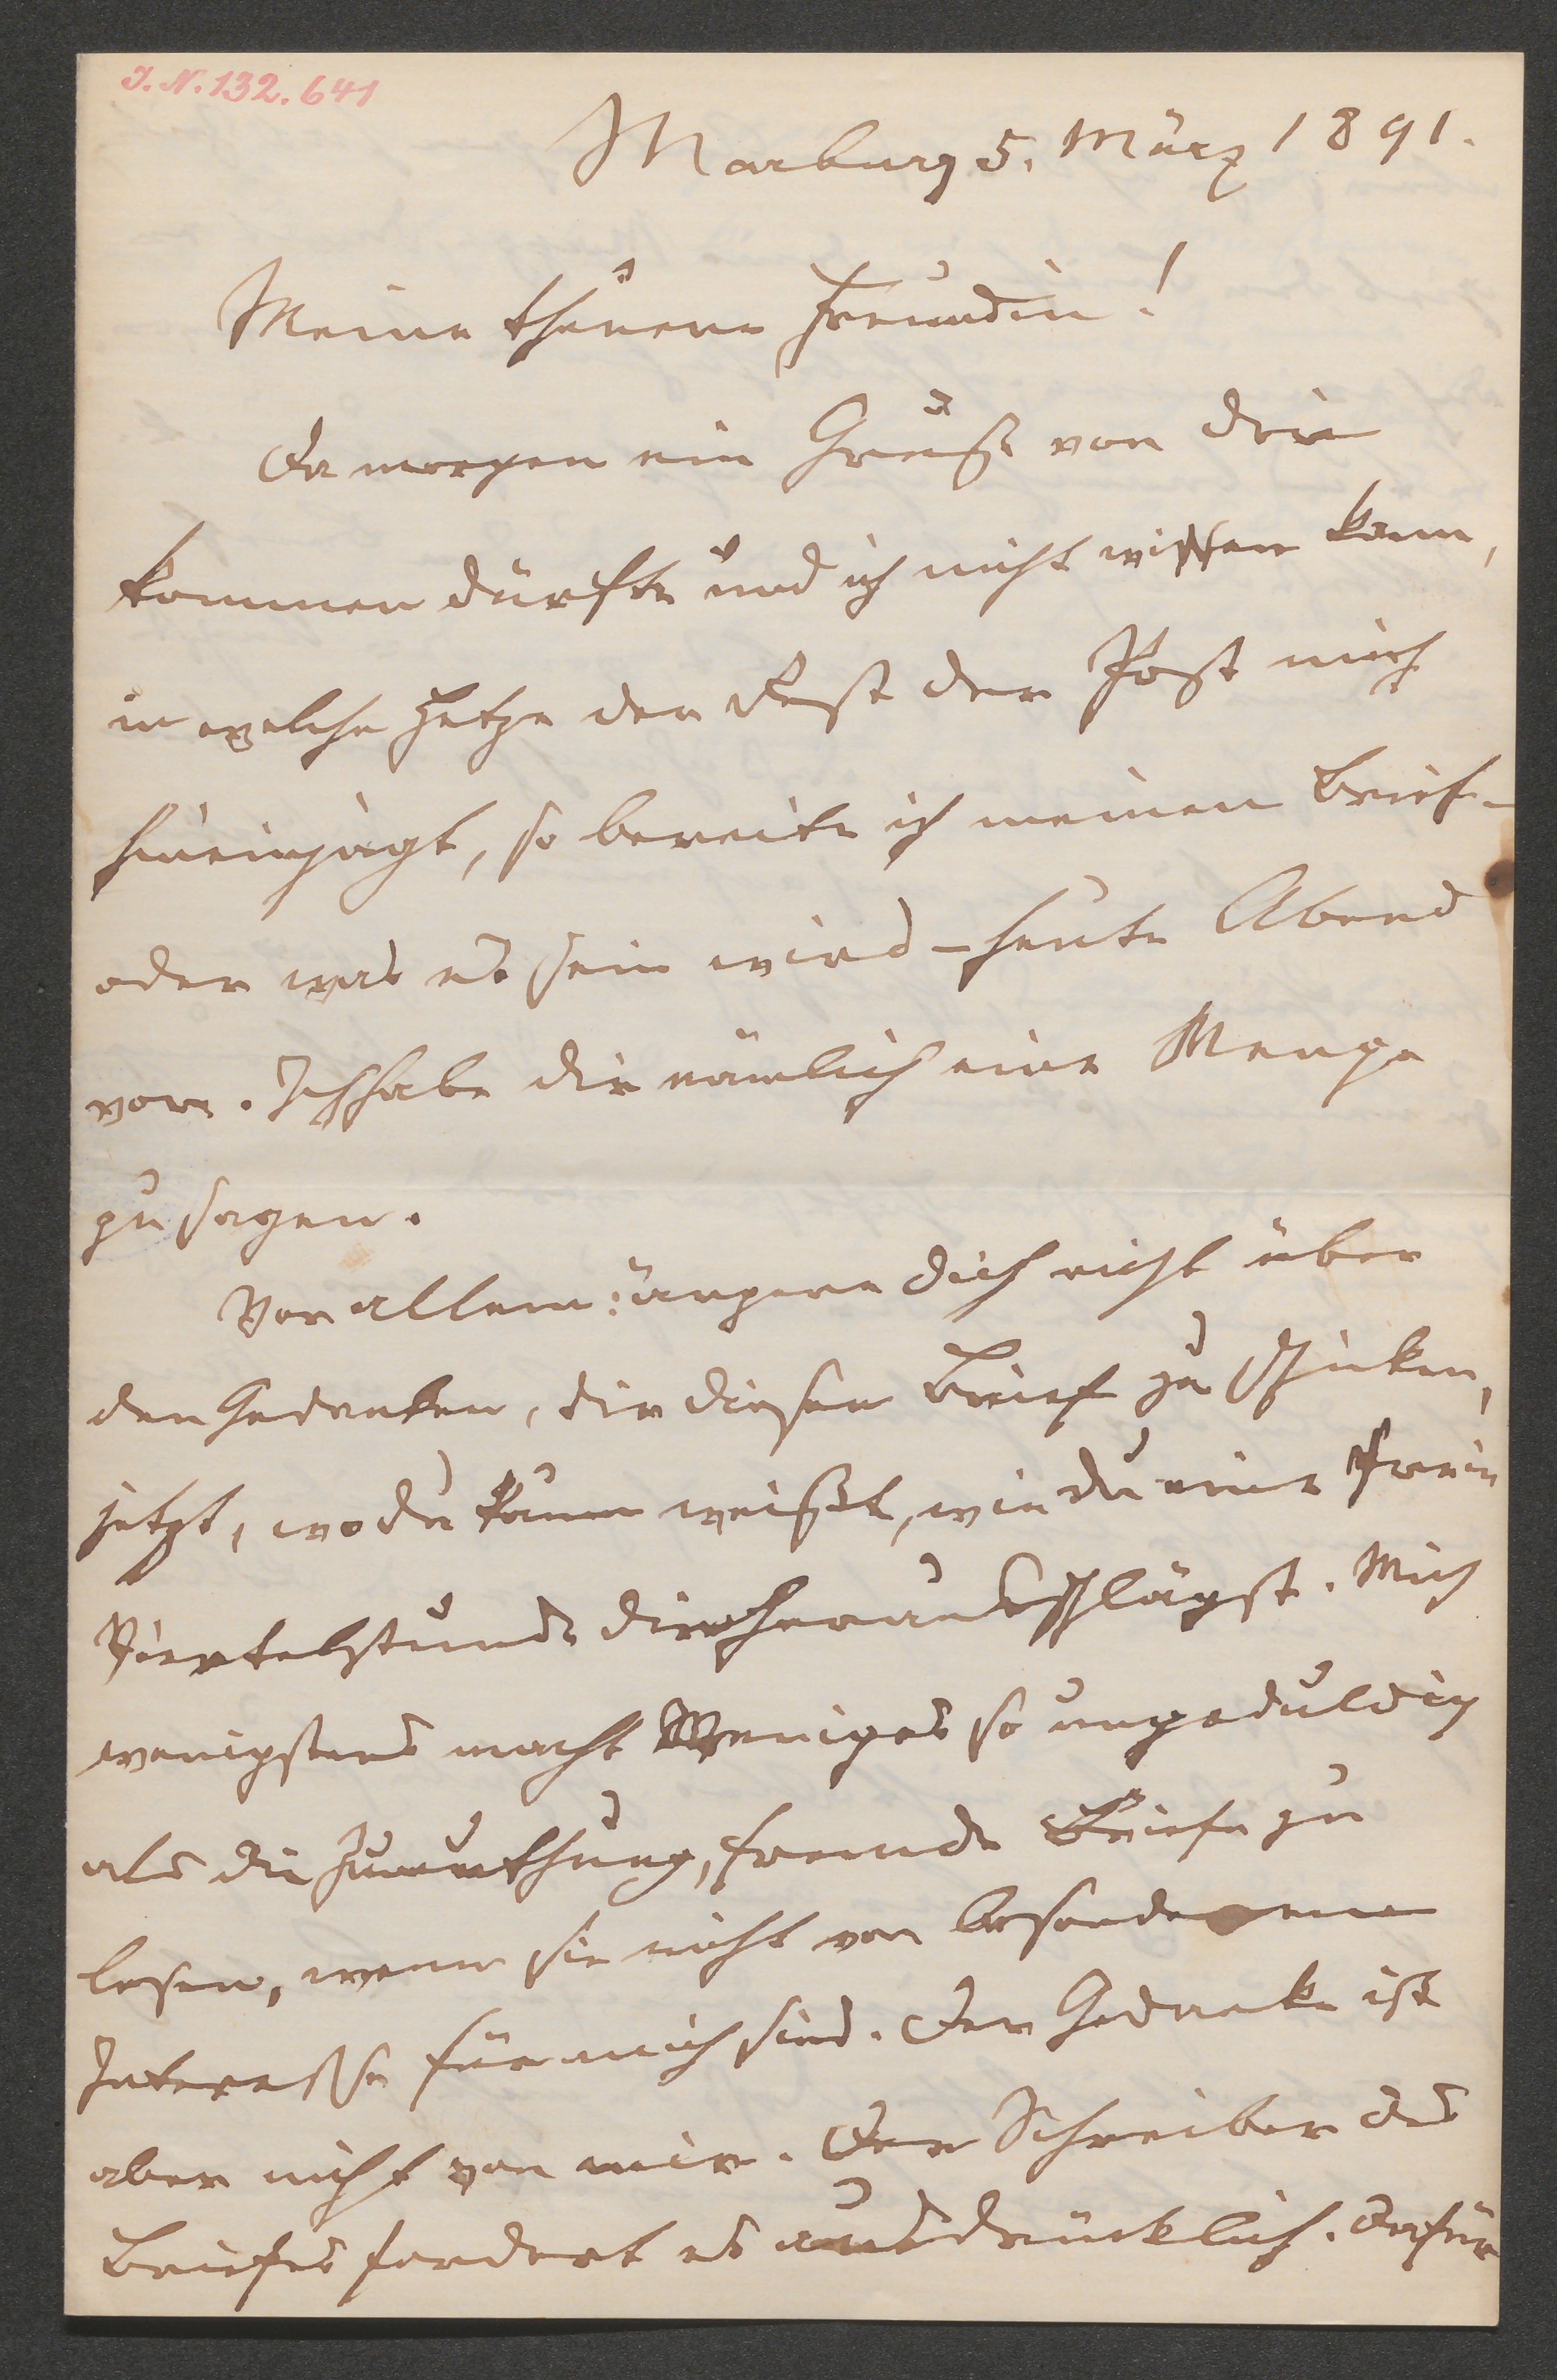 J. N. 132.641
Marburg 5. März 1891.
Meine theuere Freundin!
Da morgen ein Gruß von dir
kommen dürfte und ich nicht wissen kann,
in welche Hetze der Rest der Post mich
hineinjagt, so bereite ich meinen Brief –
oder was es sein wird – heute Abend
vor. Ich habe dir nämlich eine Menge
zu sagen.
Vor allem: ärgere dich nicht über
den Gedanken, dir diesen Brief zu schicken,
jetzt, wo du kaum weißt, wie du eine freie
Viertelstunde dir herausschlägst. Mich
wenigstens macht Weniges so ungeduldig
als die Zumuthung, fremde Briefe zu
lesen, wenn sie nicht von besonderem
Interesse für mich sind. Der Gedanke ist
aber nicht von mir. Der Schreiber des
Briefes fordert es ausdrücklich. Dafür